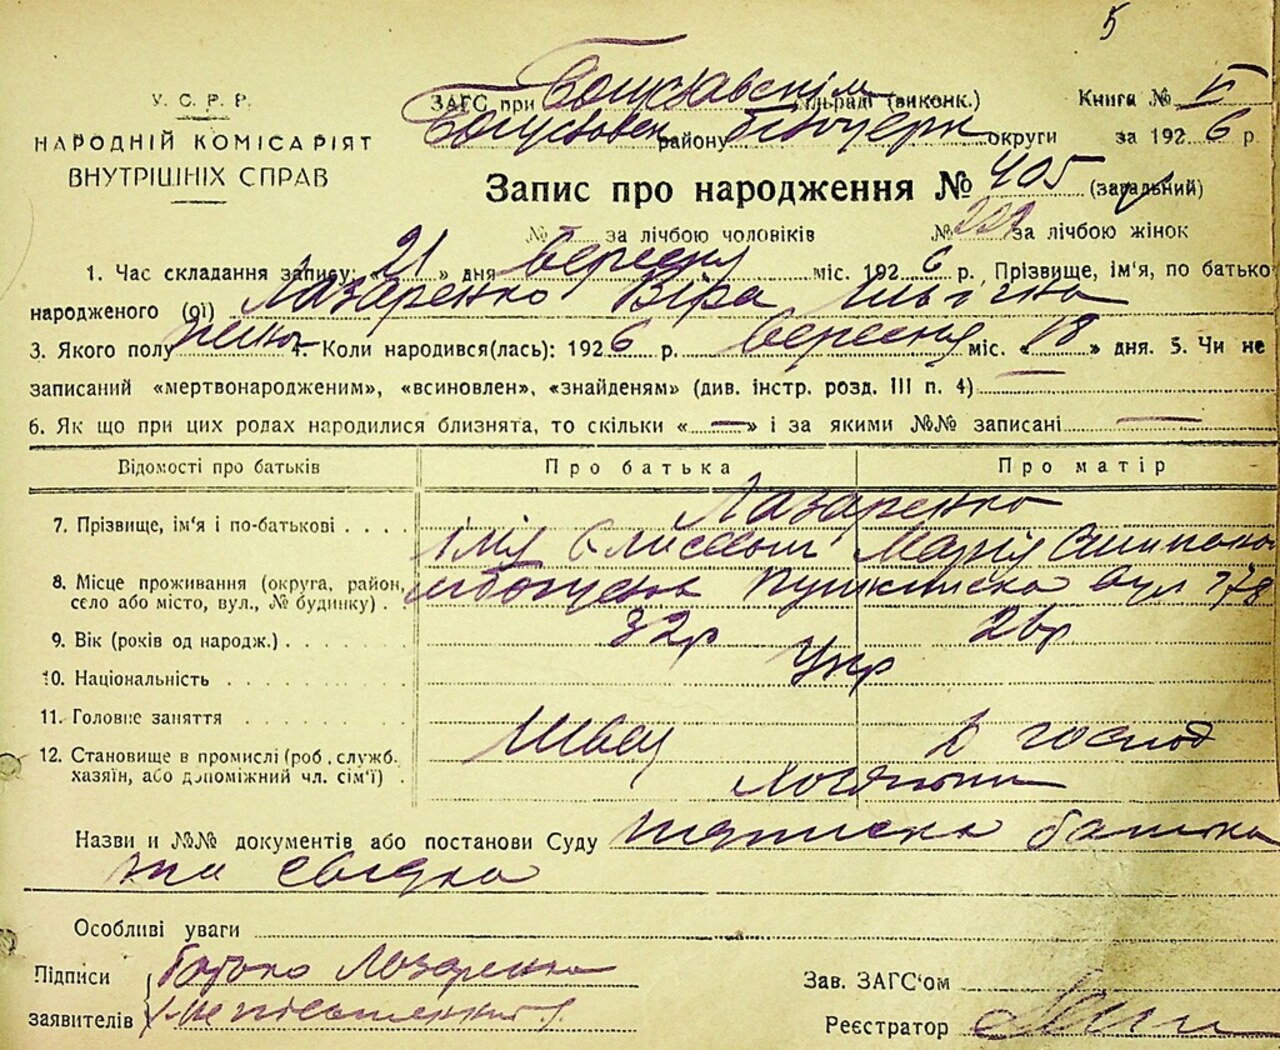 5
У.С.Р.Р.
НАРОДНІЙ КОМІСАРІЯТ
ВНУТРІШНІХ СПРАВ
ЗАГС при Богуславскім сільраді (виконк.) Книга №
Богуславськ району Білоцерк округи за 1926 р
Запис про народження № 405 (загальний)
№ за лічбою чоловіків № за лічбою жінок
1. Час складання запису: «21» дня вересня міс. 1926 р. Прізвище, ім'я, по батько
народженого (ої) Лазаренко Віра Ільїчна
3. Якого полу жіноч 4. Коли народився(лась): 1926 р. вересня міс. «18» дня. 5. Чи не
записаний «мертвонародженим», «всиновлен», «знайденям» (див. інстр. розд. III п. 4) —
6. Як що при цих родах народилися близнята, то скільки «—» і за якими №№ записані —
Відомості про батьків Про батька Про матір
7. Прізвище, ім'я і по-батькові Лазаренко
Ілія Марія
8. Місце проживання (округа, район, село або місто, вул., № будинку) м Богуслав Пушкінска вул 778
9. Вік (років од народж.) 32р 26р
10. Національність Укр
11. Головне заняття Швец д господ
12. Становище в промислі (роб., служб. хазяїн, або допоміжний чл. сім'ї)
Назви и №№ документів або постанови Суду підписка батька
та свідка
Особливі уваги
Підписи батько Лазаренко
заявителів неписьменний
Зав. ЗАГС'ом
Реєстратор